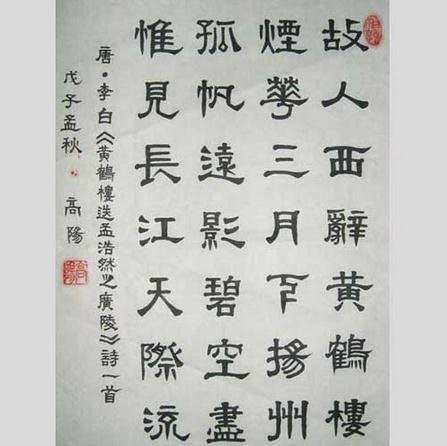 故人西辭黄鶴樓
煙華三月下揚州
孤帆遠影碧空盡
惟見長江天際流
唐·李白《黄鶴樓送孟浩然之廣陵》詩一首
戊子孟秋·高陽